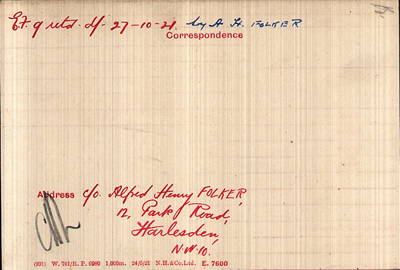 E.F. 9 retd. d/- 27-10-21. by A. H. FOLKER
Correspondence
Address c/o. Alfred Henry FOLKER,
12, Park Road,
Harlesden,
N.W.10.
(931) W. 741/R. P. 6980 1,000m. 24/6/21 N.H.&Co.Ltd. E. 7600